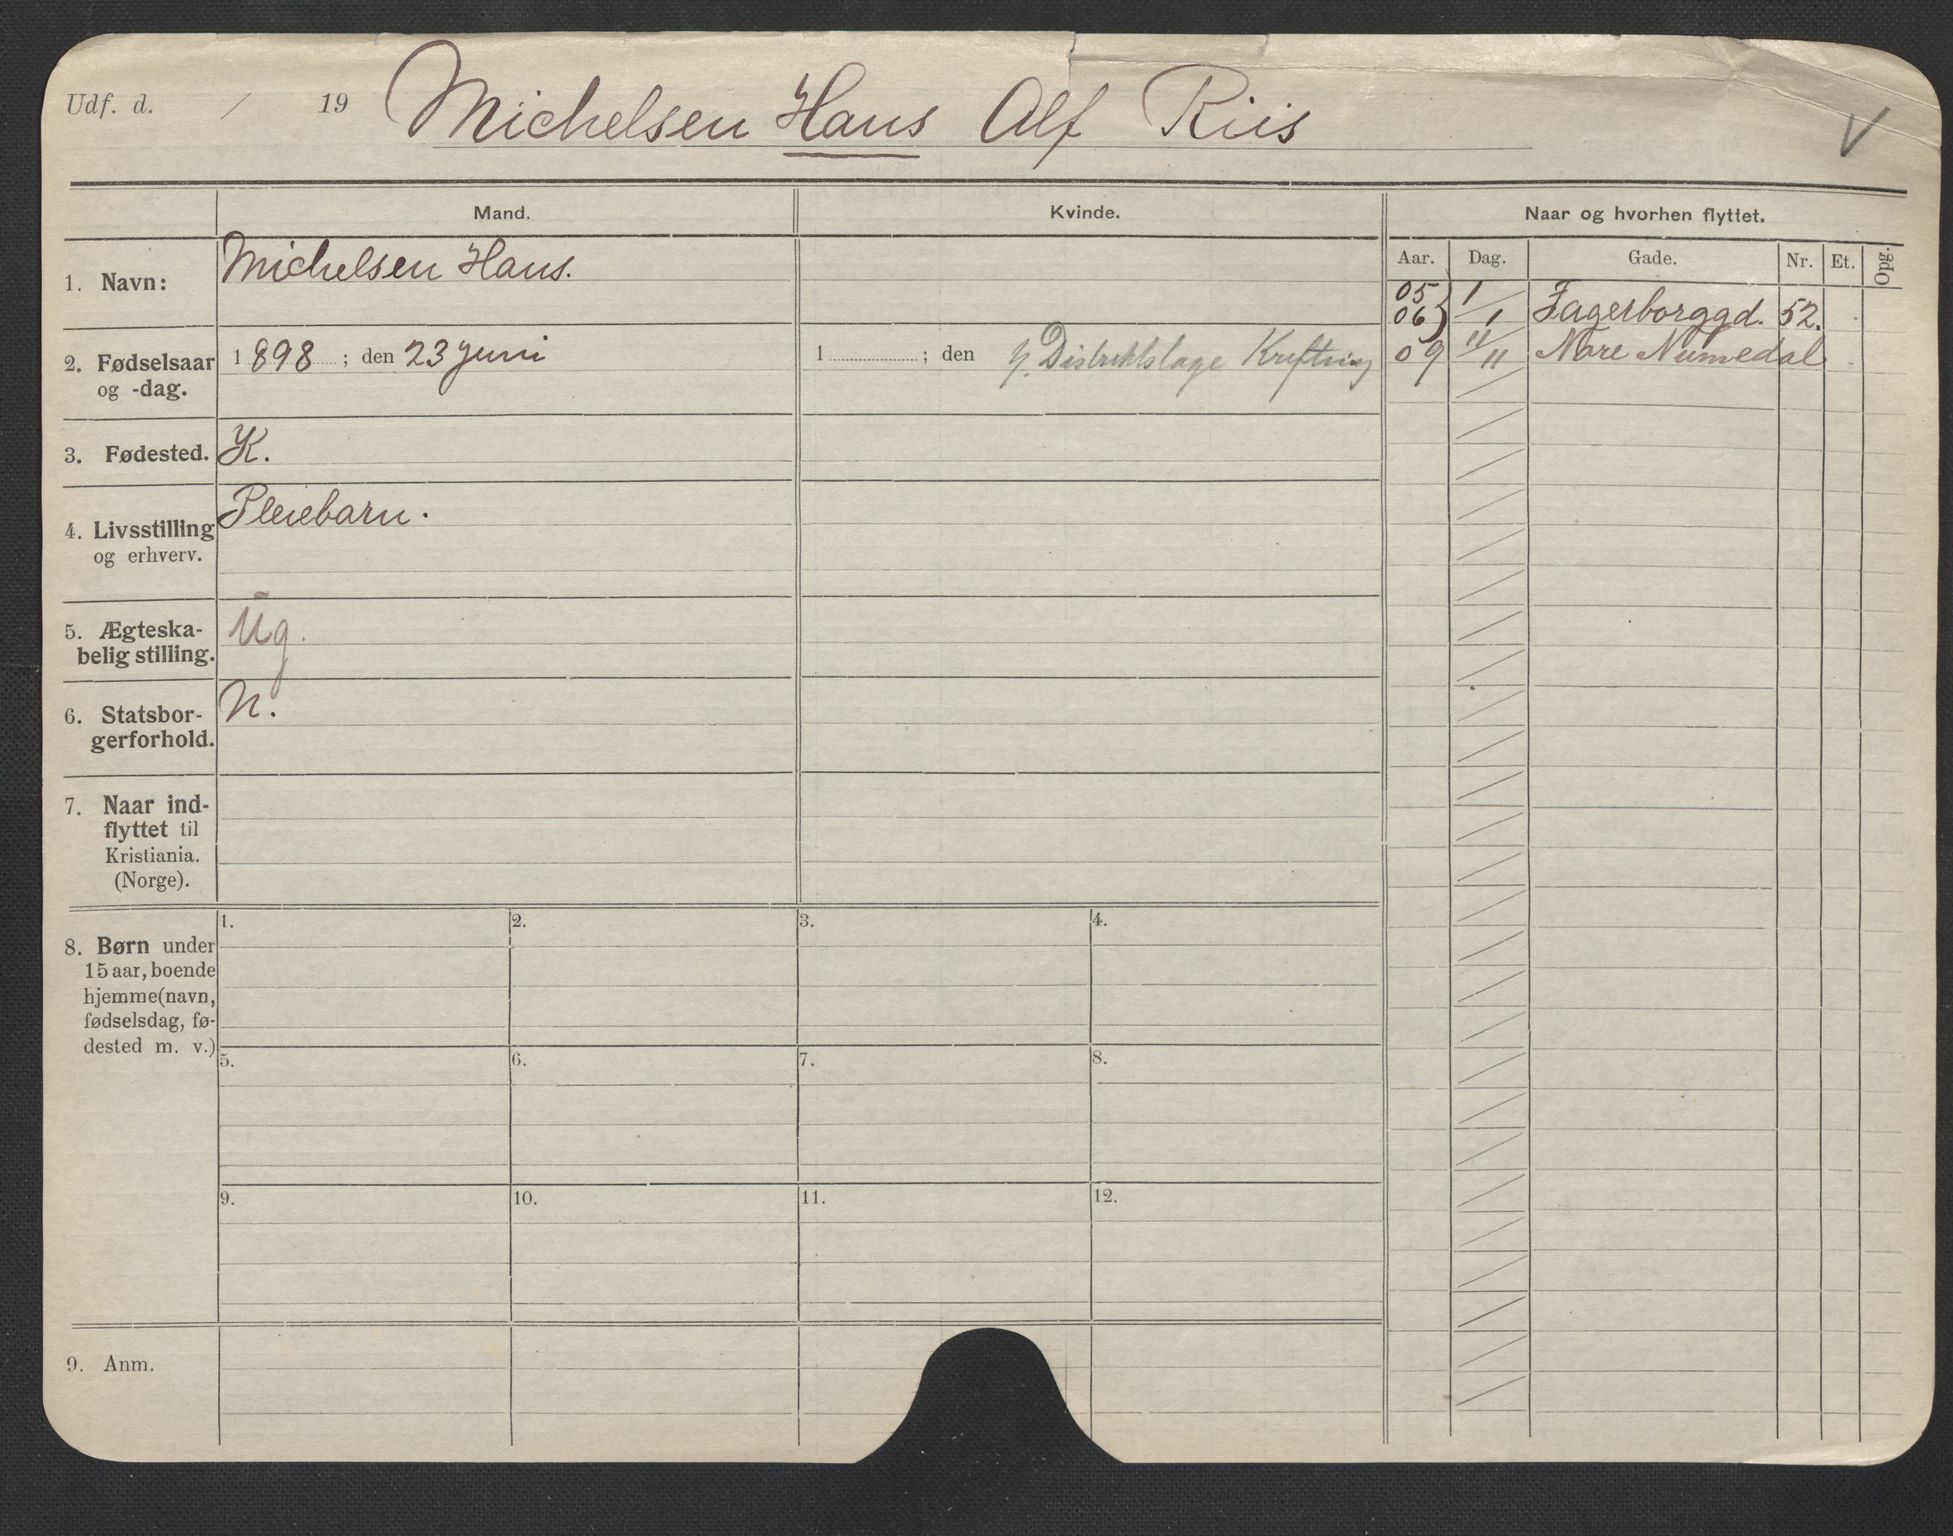 Udf. d. / 19 Michelsen Hans Alf Riis V
Mand. Kvinde. Naar og hvorhen flyttet.
Aar. Dag. Gade. Nr. Et. Opg.
1. Navn: Michelsen Hans.
05
06} 1/1 Fagerborggd. 52.
2. Fødselsaar og -dag. 1898; den 23 juni 1 ; den Distriktslæge Krefting 09 11/11 Nore Numedal
3. Fødested. K.
4. Livsstilling og erhverv. Pleiebarn.
5. Ægteska-
belig stilling. Ug.
6. Statsbor-
gerforhold. N.
7. Naar ind-
flyttet til
Kristiania.
(Norge).
8. Børn under
15 aar, boende
hjemme (navn,
fødselsdag, fø-
dested m. v.)
1. 2. 3. 4.
5. 6. 7. 8.
9. 10. 11. 12.
9. Anm.